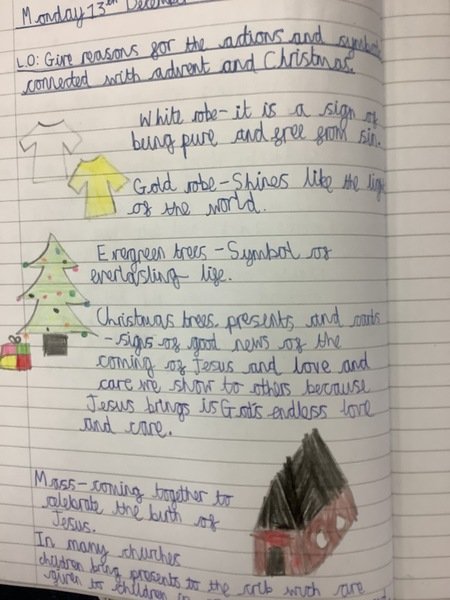 Monday 13th Decem
L.O: Give reasons for the actions and symbols
connected with advent and Christmas.
White robe - it is a sign of
being pure and free from sin.
Gold robe - Shines like the light
of the world.
Evergreen trees - Symbol of
everlasting life.
Christmas trees, presents and cards
- signs of good news of the
coming of Jesus and love and
care we show to others because
Jesus brings is God's endless love
and care.
Mass - coming together to
celebrate the birth of
Jesus.
In many churches
children bring presents to the crib wich are
given to children in